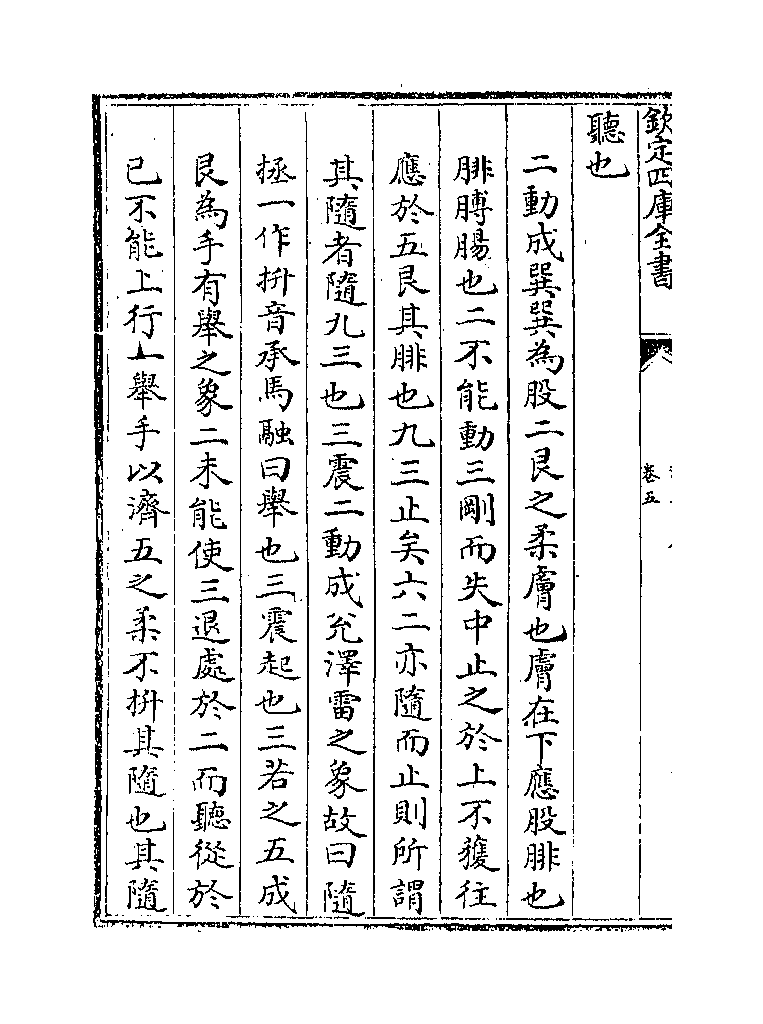 欽定四庫全書
卷五
聽也
二動成巽巽為股二艮之柔膚也膚在下應股腓也
腓膊腸也二不能動三剛而失中止之於上不獲往
應於五艮其腓也九三止矣六二亦隨而止則所謂
其隨者隨九三也三震二動成兊澤雷之象故曰隨
拯一作拼音承馬融曰舉也三震起也三若之五成
艮為手有舉之象二未能使三退處於二而聽從於
已不能上行上舉手以濟五之柔不拼其隨也其隨